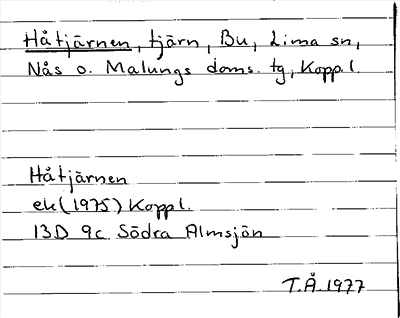 Håtjärnen, tjärn, Bu, Lima sn,
Nås o. Malungs doms. tg, Kopp.l.
Håtjärnen
ek (1975) Kopp l.
13D 9c Södra Almsjön
T.Å. 1977